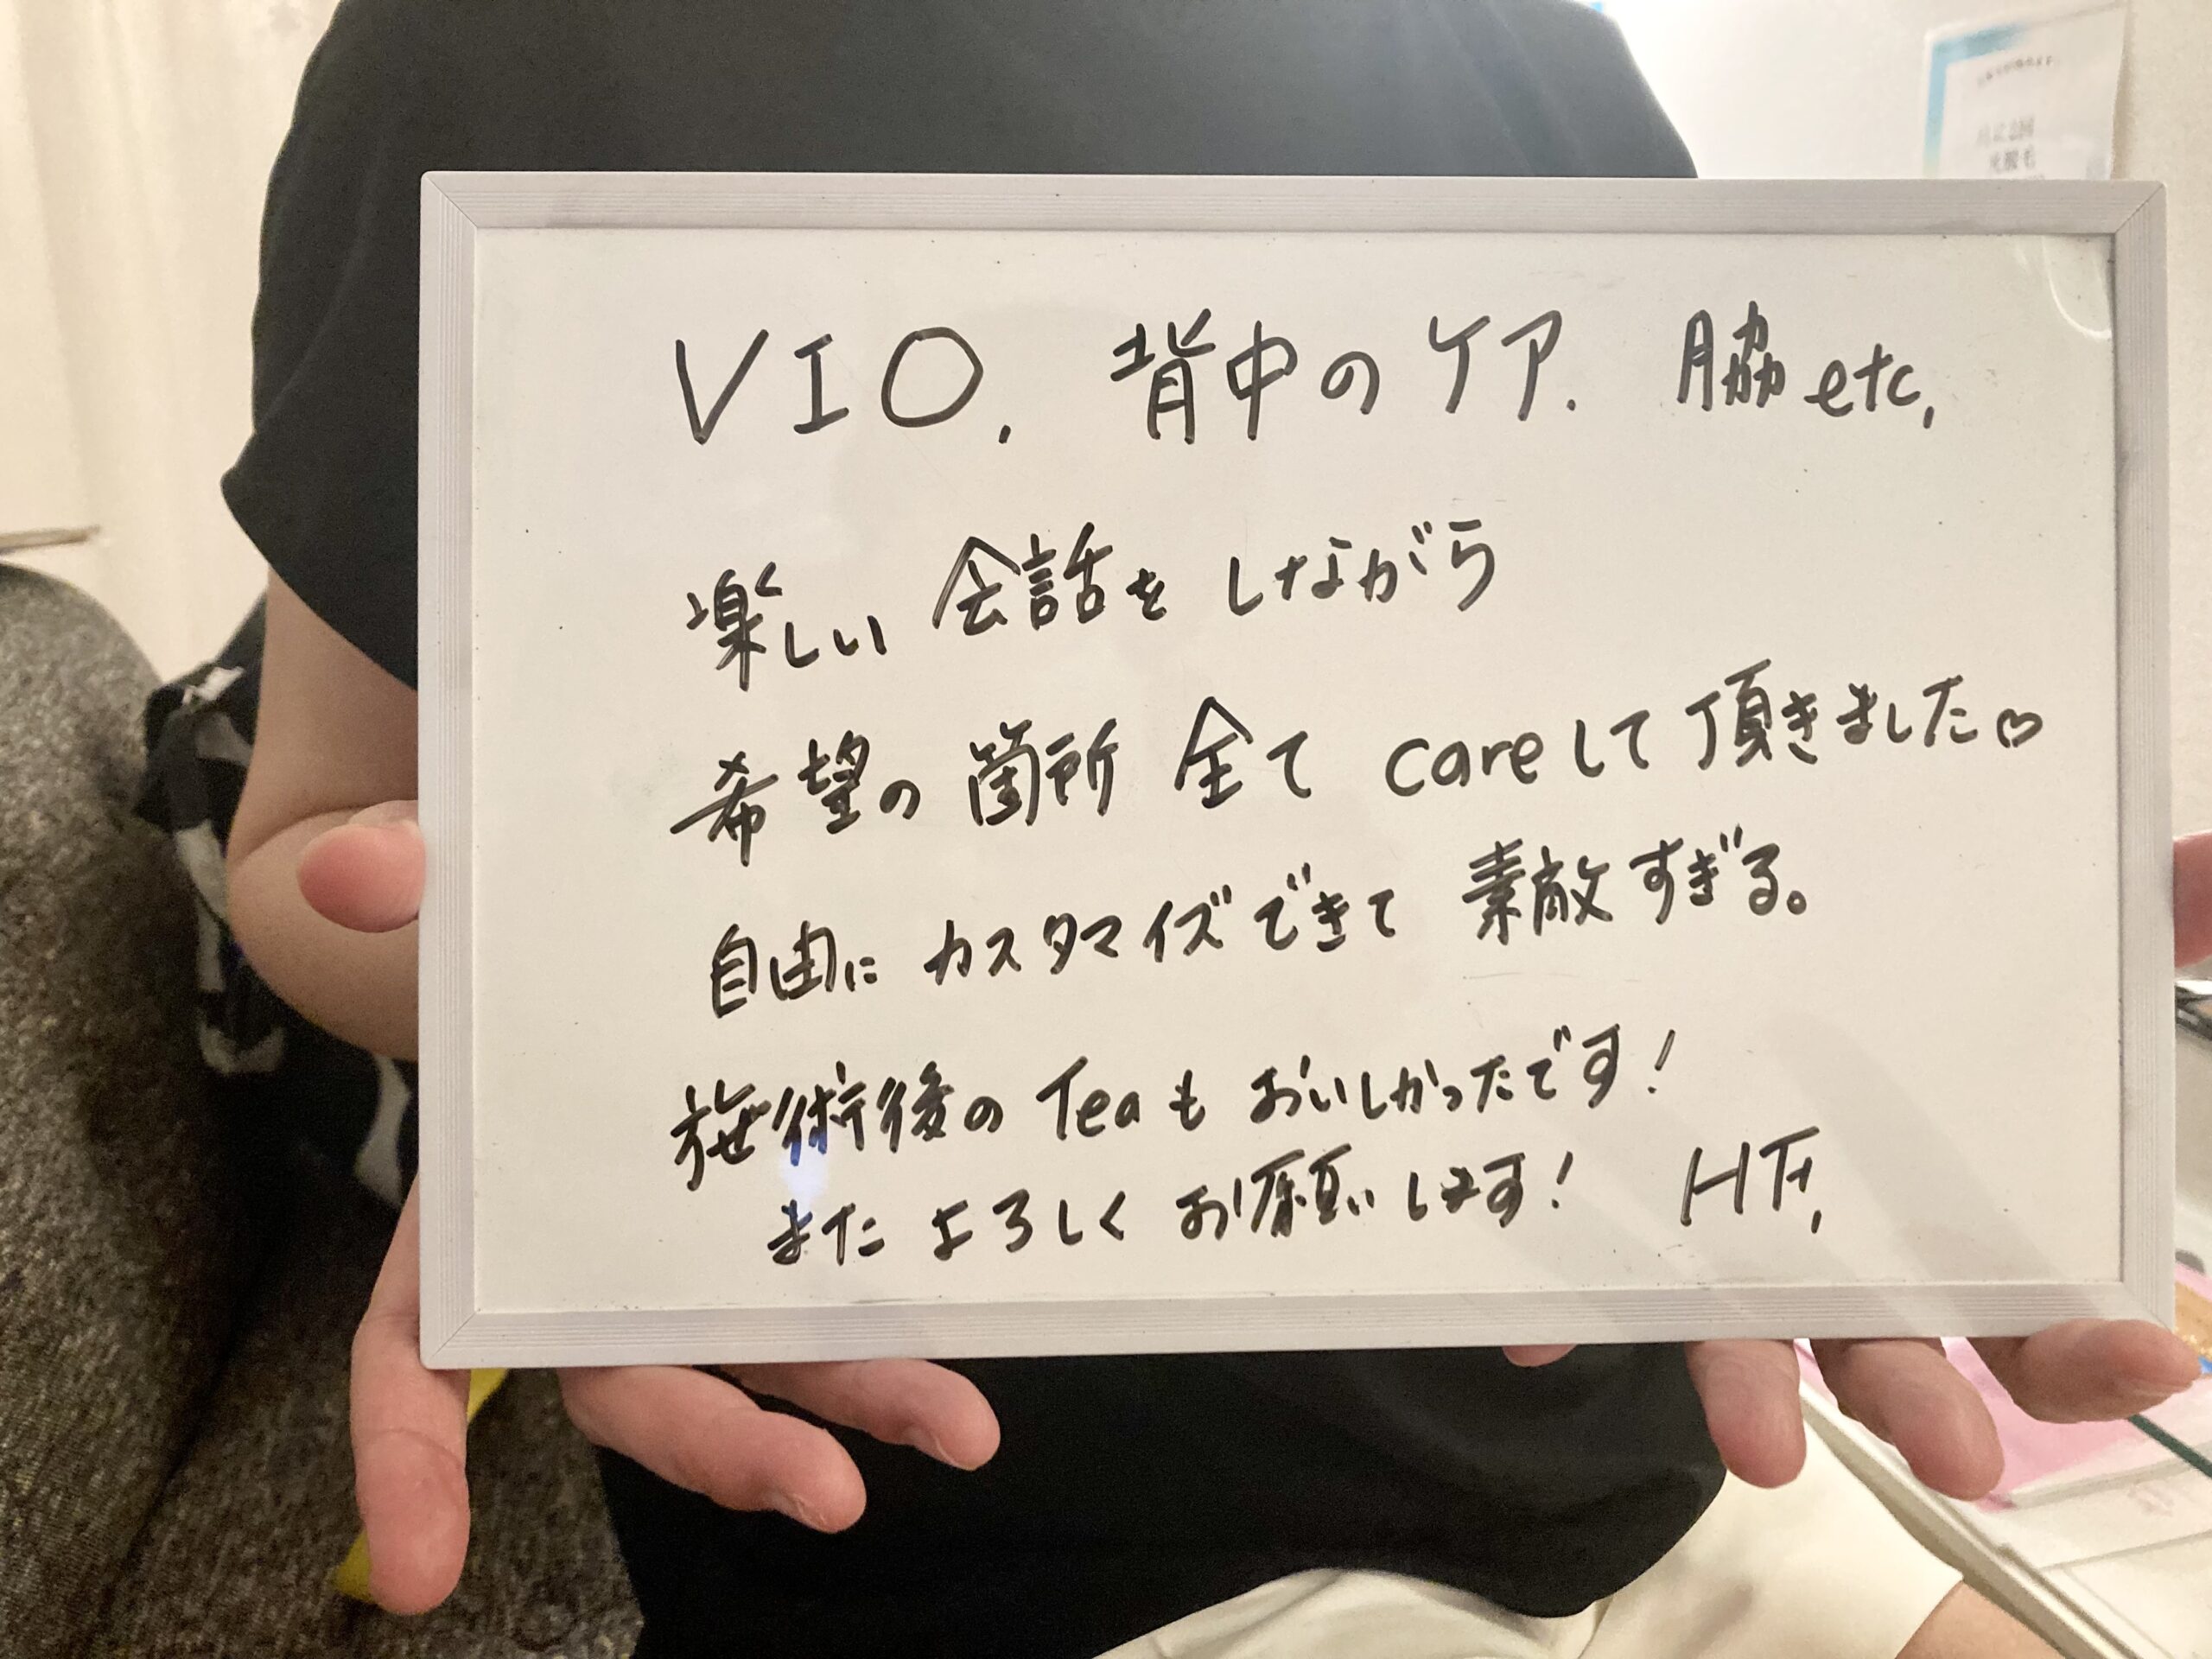 VIO, 背中のケア. 脇 etc,
楽しい会話をしながら
希望の箇所全てcareして頂きました♡
自由にカスタマイズできて素敵すぎる。
施術後のTeaもおいしかったです!
またよろしくお願いします! HF,